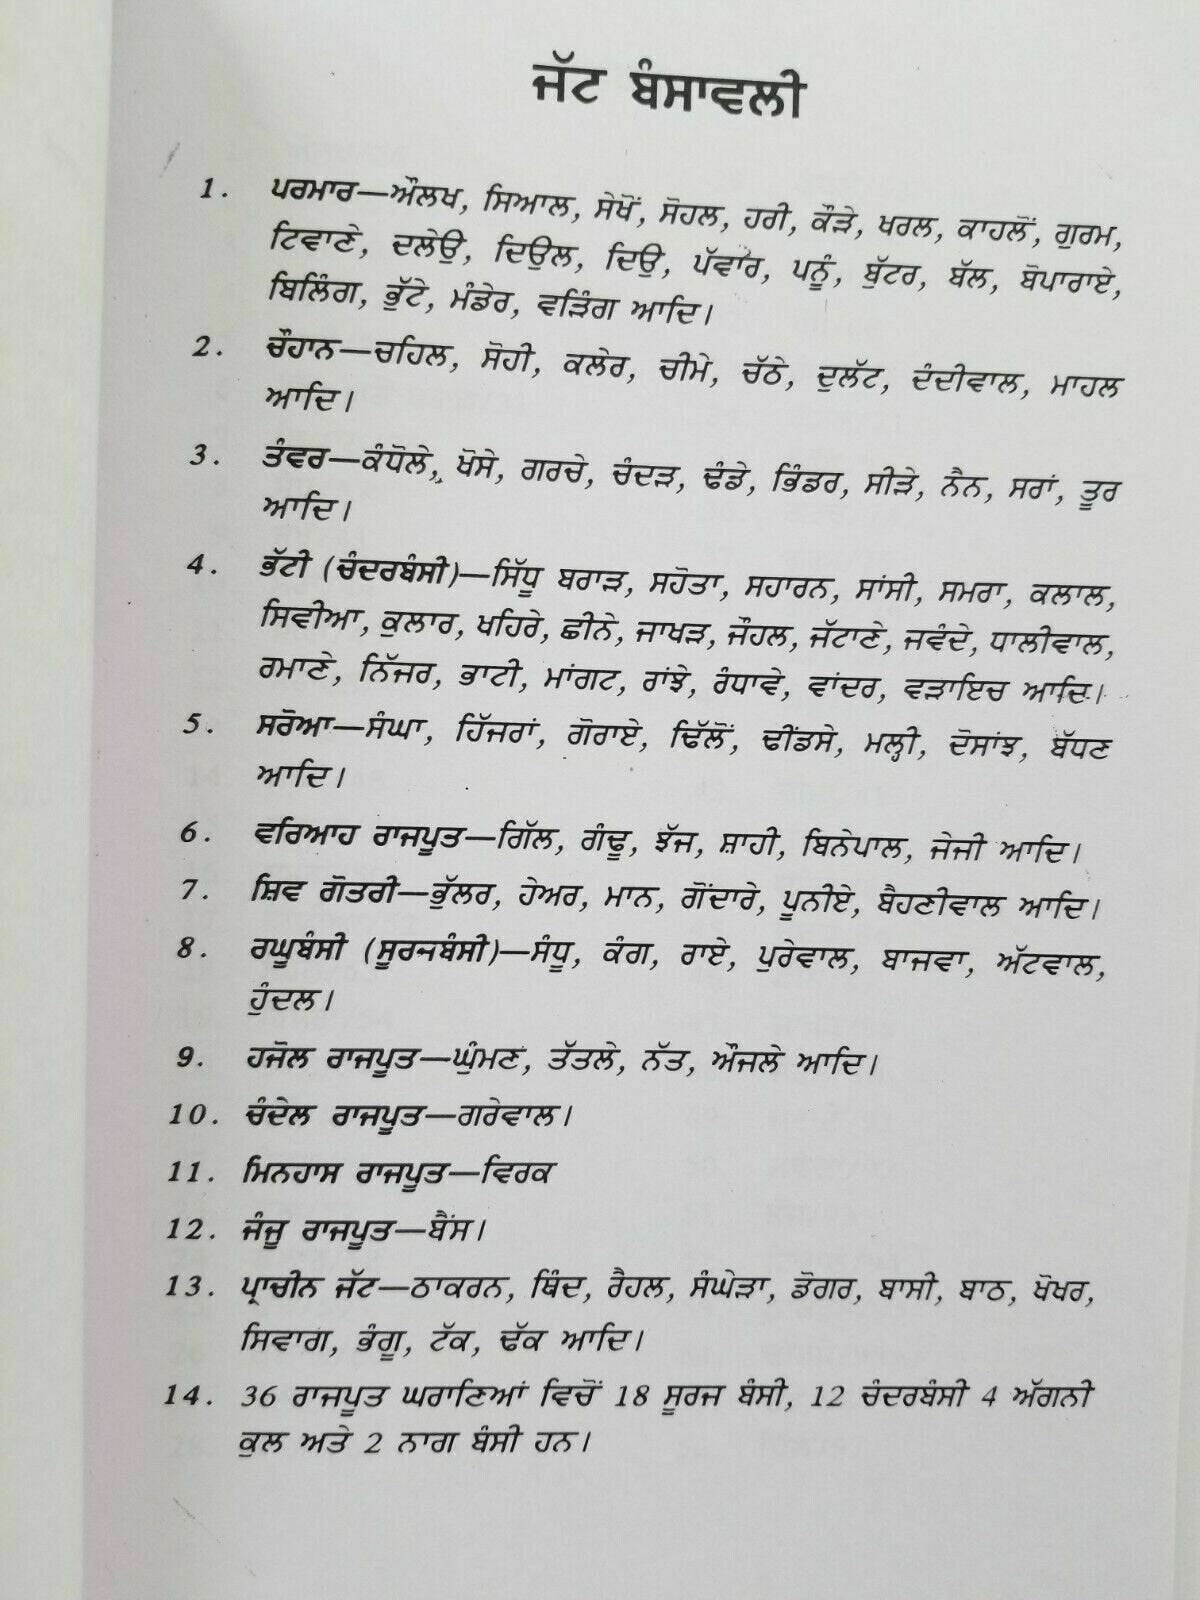 ਜੱਟ ਬੰਸਾਵਲੀ
1. ਪਰਮਾਰ—ਔਲਖ, ਸਿਆਲ, ਸੇਖੋਂ, ਸੋਹਲ, ਹਰੀ, ਕੌੜੇ, ਖਰਲ, ਕਾਹਲੋਂ, ਗੁਰਮ,
ਟਿਵਾਣੇ, ਦਲੇਉ, ਦਿਉਲ, ਦਿਉ, ਪੱਵਾਰ, ਪਨੂੰ, ਬੁੱਟਰ, ਬੱਲ, ਬੋਪਾਰਾਏ,
ਬਿਲਿੰਗ, ਭੁੱਟੇ, ਮੰਡੇਰ, ਵੜਿੰਗ ਆਦਿ।
2. ਚੌਹਾਨ—ਚਹਿਲ, ਸੋਹੀ, ਕਲੇਰ, ਚੀਮੇ, ਚੱਠੇ, ਦੁਲੱਟ, ਦੰਦੀਵਾਲ, ਮਾਹਲ
ਆਦਿ।
3. ਤੰਵਰ—ਕੰਧੋਲੇ, ਖੋਸੇ, ਗਰਚੇ, ਚੰਦੜ, ਢੰਡੇ, ਭਿੰਡਰ, ਸੀੜੇ, ਨੈਨ, ਸਰਾਂ, ਤੂਰ
ਆਦਿ।
4. ਭੱਟੀ (ਚੰਦਰਬੰਸੀ)—ਸਿੱਧੂ ਬਰਾੜ, ਸਹੋਤਾ, ਸਹਾਰਨ, ਸਾਂਸੀ, ਸਮਰਾ, ਕਲਾਲ,
ਸਿਵੀਆ, ਕੁਲਾਰ, ਖਹਿਰੇ, ਛੀਨੇ, ਜਾਖੜ, ਜੌਹਲ, ਜੱਟਾਣੇ, ਜਵੰਦੇ, ਧਾਲੀਵਾਲ,
ਰਮਾਣੇ, ਨਿੱਜਰ, ਭਾਟੀ, ਮਾਂਗਟ, ਰਾਂਝੇ, ਰੰਧਾਵੇ, ਵਾਂਦਰ, ਵੜਾਇਚ ਆਦਿ।
5. ਸਰੋਆ—ਸੰਘਾ, ਹਿੱਜਰਾਂ, ਗੋਰਾਏ, ਢਿੱਲੋਂ, ਢੀਂਡਸੇ, ਮਲ੍ਹੀ, ਦੋਸਾਂਝ, ਬੱਧਣ
ਆਦਿ।
6. ਵਰਿਆਹ ਰਾਜਪੂਤ—ਗਿੱਲ, ਗੰਢੂ, ਝੱਜ, ਸ਼ਾਹੀ, ਬਿਨੇਪਾਲ, ਜੇਜੀ ਆਦਿ।
7. ਸ਼ਿਵ ਗੋਤਰੀ—ਭੁੱਲਰ, ਹੇਅਰ, ਮਾਨ, ਗੋਂਦਾਰੇ, ਪੂਨੀਏ, ਬੈਹਣੀਵਾਲ ਆਦਿ।
8. ਰਘੂਬੰਸੀ (ਸੂਰਜਬੰਸੀ)—ਸੰਧੂ, ਕੰਗ, ਰਾਏ, ਪੁਰੇਵਾਲ, ਬਾਜਵਾ, ਅੱਟਵਾਲ,
ਹੁੰਦਲ।
9. ਹਜੋਲ ਰਾਜਪੂਤ—ਘੁੰਮਣ, ਤੱਤਲੇ, ਨੱਤ, ਔਜਲੇ ਆਦਿ।
10. ਚੰਦੇਲ ਰਾਜਪੂਤ—ਗਰੇਵਾਲ।
11. ਮਿਨਹਾਸ ਰਾਜਪੂਤ—ਵਿਰਕ
12. ਜੰਜੂ ਰਾਜਪੂਤ—ਬੈਂਸ।
13. ਪ੍ਰਾਚੀਨ ਜੱਟ—ਠਾਕਰਨ, ਥਿੰਦ, ਰੈਹਲ, ਸੰਘੇੜਾ, ਡੋਗਰ, ਬਾਸੀ, ਬਾਠ, ਖੋਖਰ,
ਸਿਵਾਗ, ਭੰਗੂ, ਟੱਕ, ਢੱਕ ਆਦਿ।
14. 36 ਰਾਜਪੂਤ ਘਰਾਣਿਆਂ ਵਿਚੋਂ 18 ਸੂਰਜ ਬੰਸੀ, 12 ਚੰਦਰਬੰਸੀ 4 ਅੱਗਨੀ
ਕੁਲ ਅਤੇ 2 ਨਾਗ ਬੰਸੀ ਹਨ।